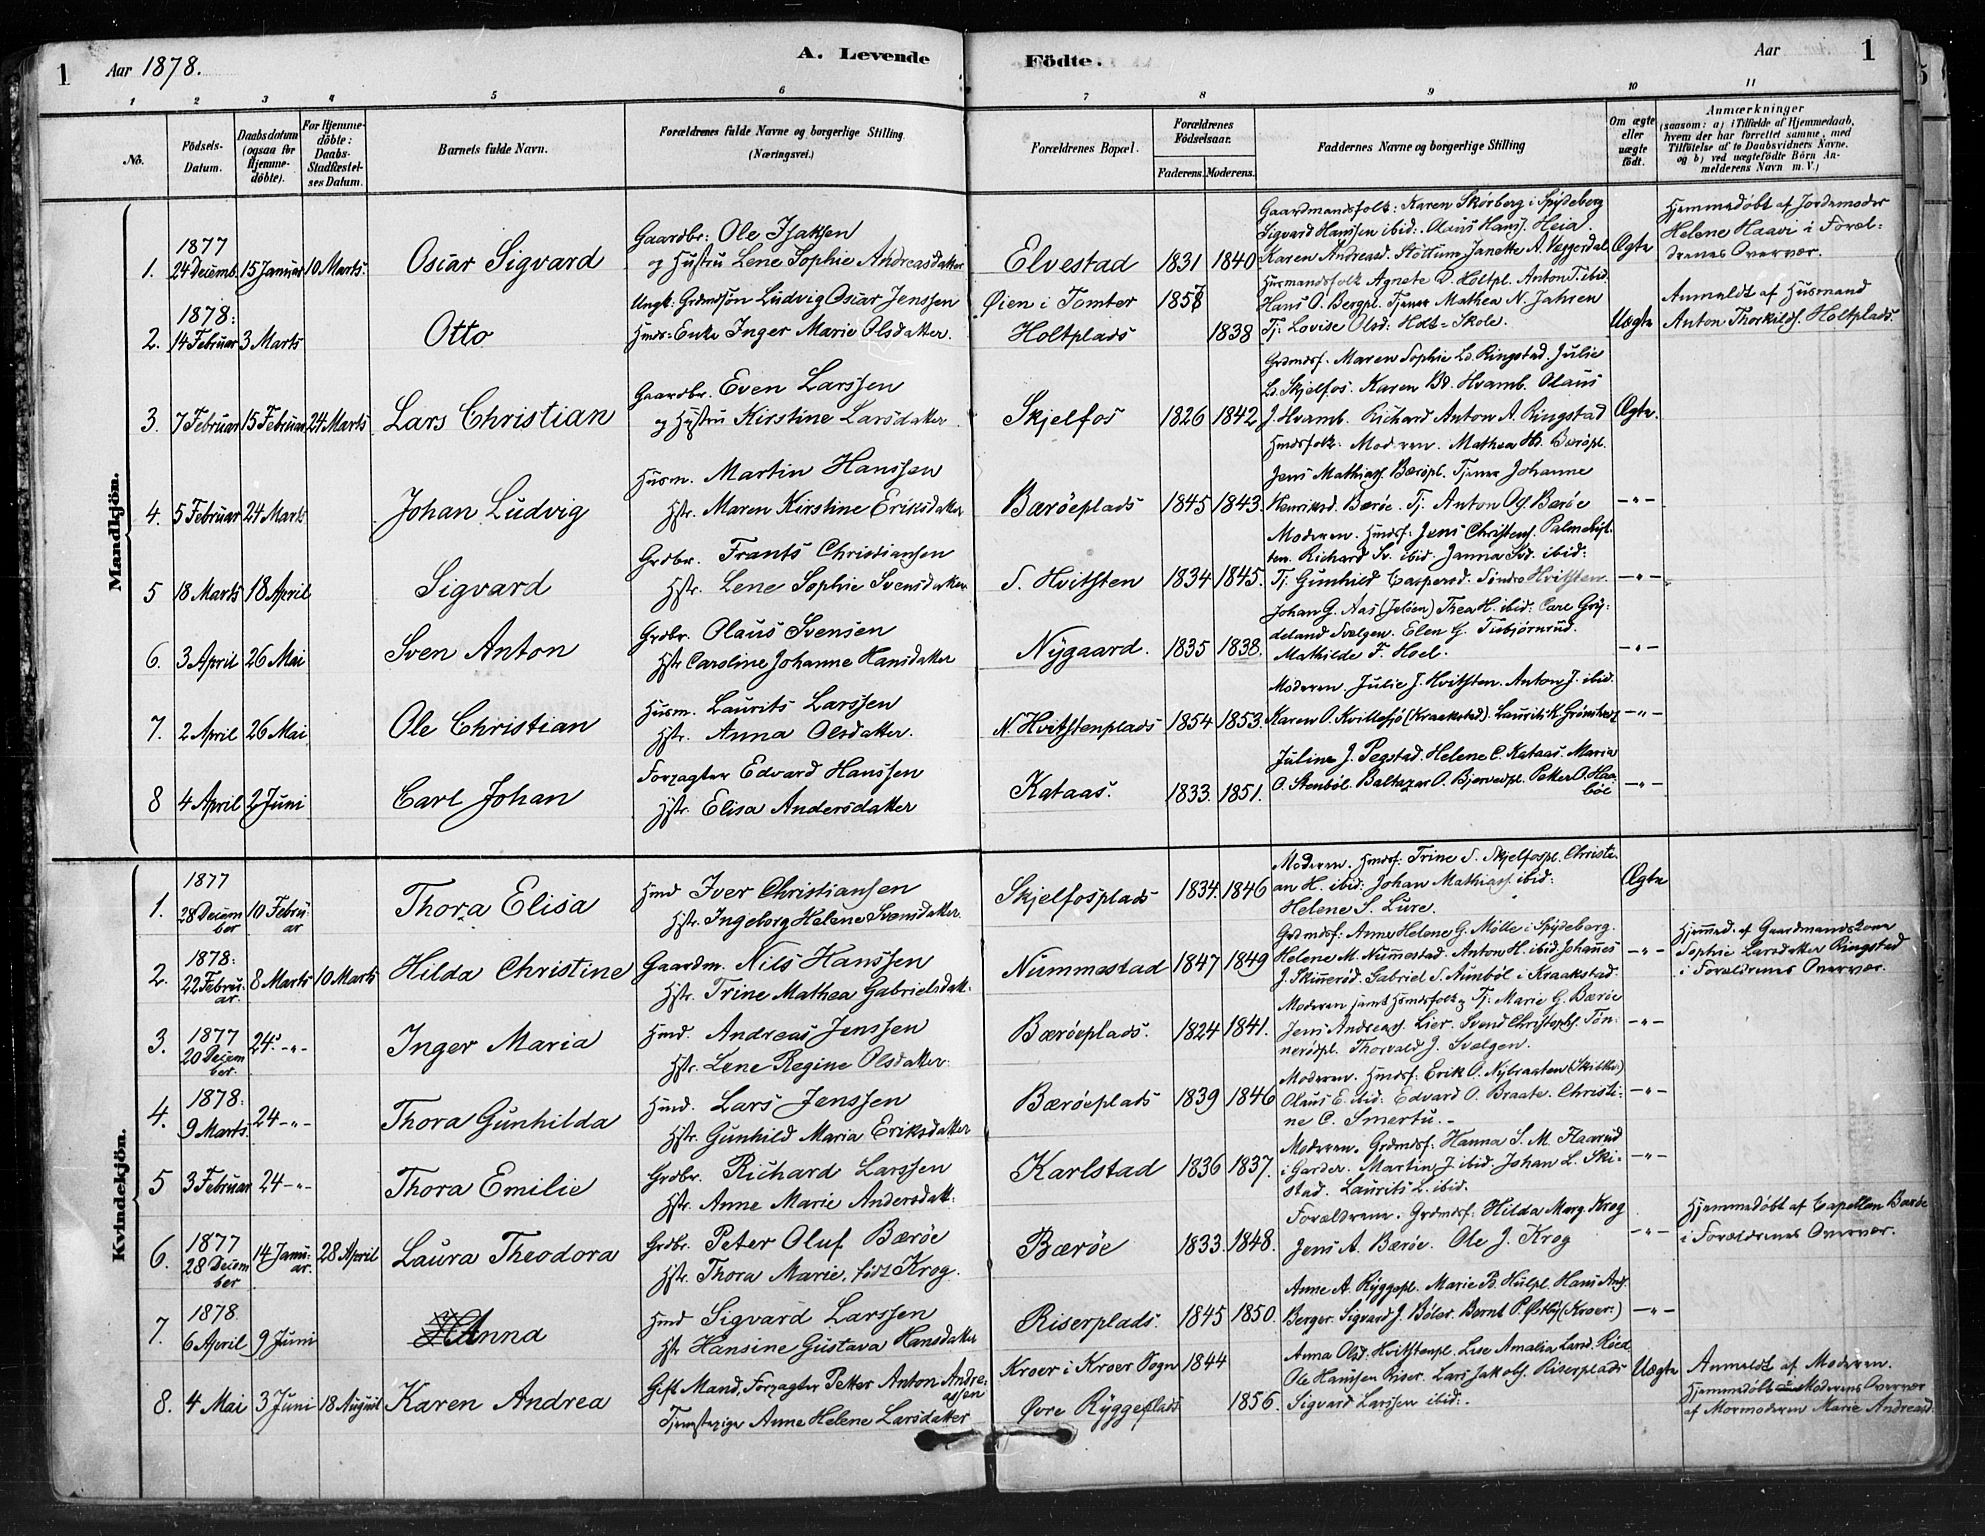 1 Aar 1878. A. Levende Födte. Aar 1
1 2 3 4 5 6 7 8 9 10 11
No.
Födsels-Datum.
Daabsdatum (ogsaa for Hjemme-döbte).
For Hjemme-döbte: Daabs-Stadfæstel-ses Datum.
Barnets fulde Navn.
Forældrenes fulde Navne og borgerlige Stilling.
(Næringsvei.)
Forældrenes Bopæl.
Forældrenes Födselsaar.
Faderens. Moderens.
Faddernes Navne og borgerlige Stilling
Om ægte eller uægte födt.
Anmærkninger
(saasom: a) i Tilfælde af Hjemmedaab,
hvem der har forrettet samme, med
Tilföielse af to Daabsvidners Navne.
og b) ved uægtefödte Börn An-
melderens Navn m. V.)
Mandkjön.
1. 1877 24 Decemb. 15 Januar 10 Marts. Oscar Sigvard
Gaardbr: Ole Isaksen
og Hustru Lene Sophie Andreasdatter
Elvestad 1831 1840
Gaardmandsfolk: Karen Skørberg i Spydeberg
Sigvard Hanssen ibid: Olaus Hanss. Heia
Karen Andreasd. Stottum Janette A. Væggerdal
Ægte
Hjemmedøbt af Jordemoder
Helene Haavi i Foræl-
drenes Overvær.
2. 1878: 14 Februar 3 Marts Otto
Ungk: Grdmdsøn Ludvig Oscar Jenssen
Hmds-Enke Inger Marie Olsdatter.
Øien i Tomter 1857
Holtplads 1838
Husmandsfolk Agnete D. Holtpl. Anton T. ibid.
Hans O. Bergpl. Tjener Mathea N. Jahren
Tj. Lovise Olsd: Hdt-Skole.
Uægte
Anmeldt af Husmand
Anton Thorkilds. Holtplads.
3. 7 Februar 15 Februar 24 Marts Lars Christian
Gaardbr. Even Larssen
og Hustru Kirstine Larsdatter.
Skjelfos 1826 1842
Grdmdsf. Maren Sophie Ld. Ringstad. Julie
Ld. Skjelfos. Karen Bd. Hvamb. Olaus
J. Hvamb. Richard Anton A. Ringstad
Ægte.
4. 5 Februar 24 Marts Johan Ludvig
Husm. Martin Hanssen
Hstr. Maren Kirstine Eriksdatter
Bærøeplads 1845 1843.
Hmdsfolk: Moderen. Mathea Hd. Bærøpl.
Jens Mathiass. Bærøpl. Tjener Johanne
Henriksd. Bærøe. Tj. Anton Ols. Bærøe
-"-
5 18 Marts 18 April Sigvard
Grdbr. Frants Christiansen
Hstr. Lene Sophie Svensdatter
S. Hvitsten 1834 1845.
Moderen. Hmdsf: Jens Christens. Palmebyt-
ten. Richard Sv. ibid. Janna Sd. ibid:
Tj. Gunhild Caspersd. Søndre Hvitsten.
-"-
6. 3 April 26 Mai Sven Anton
Grdbr. Olaus Svensen
Hstr Caroline Johanne Hansdatter
Nygaard. 1835 1838.
Johan G. Aas (Jeløen) Thea H. ibid: Carl Gry-
deland Svelgen. Elen G. Tiebjørnrud.
Mathilde F. Hoel.
-"-
7. 2 April 26 Mai Ole Christian
Husm. Laurits Larssen
Hstr. Anna Olsdatter.
N. Hvitstenplads 1854 1853.
Moderen. Julie J. Hvitsten. Anton J. ibid.
Karen O. Kvillesjø (Kraakstad). Laurits K.
-"-
8 4 April 2 Juni Carl Johan
Forpagter Edvard Hanssen
Hstr. Elisa Andersdatter
Kataas. 1833. 1851.
Juline J. Pegstad. Helene C. Kataas. Maria
O. Stenbøl. Baltazar O. Bjervedpl. Petter O. Haa-
bøl
-"-
Kvindekjön.
1. 1877 28 Decem ber 10 Febru- ar Thora Elisa
Hmd Iver Christiansen
Hstr. Ingeborg Helene Svensdatter.
Skjelfosplads 1834. 1846
Moderen. Hmdsf: Trine S. Skjelfospl. Christi-
an H. ibid: Johan Mathiass. ibid:
Helene S. Lure.
Ægte
2. 1878: 22 Febru- ar. 8 Marts 10 Marts Hilda Christine
Gaardm. Nils Hanssen
Hstr. Trine Mathea Gabrielsdatt.
Nummestad 1847 1849
Grdmdsf: Anne Helene G. Mølle i Spydeberg
Helene M. Nummestad. Anton H. ibid. Johannes
J. Skinnerød. Gabriel S. Aunbøl i Kraakstad.
-"-
Hjemmed. af Gaardmandskone
Sophie Larsdatter Ringstad
i Forældrenes Overvær.
3. 1877 20 Decem ber. 24. -"- Inger Maria
Hmd. Andreas Jenssen
Hstr. Lene Regine Olsdatter.
Bærøeplads. 1824 1841.
Moderen samt Hmdsfolk Tj: Marie G. Bærøe
Jens Andreass. Lier. Svend Christophs. Ton-
nerødpl. Thorvald J. Svelgen.
-"-
4. 1878: 9 Marts 24 -"- Thora Gunhilda
Hmd. Lars Jenssen
Hstr. Gunhild Maria Eriksdatter
Bærøeplads 1839 1846
Moderen. Hmdsf: Erik O. Nybraaten (Skibtv.)
Olaus E. ibid: Edvard O. Braate. Christi-
ne C. Smertu.
-"-
5 3 Februar 24 -"- Thora Emilie
Grdbr. Richard Larssen
Hstr. Anne Marie Andersdatt.
Karlstad 1836 1837.
Moderen. Grdmdsf: Hanna S. M. Flaarud
i Garder. Martin J. ibid. Johan L. Ski-
stad. Laurits L. ibid.
-"-
6. 1877 28 Decem ber 14 Janu- ar. 28 April Laura Theodora
Grdbr. Peter Oluf Bærøe
Hstr. Thora Marie, født Krog.
Bærøe 1833. 1848.
Forældrene. Grdmdsf: Hilda Marg. Krog
Jens A. Bærøe. Ole J. Krog
-"-
Hjemmedøbt af Capellan Bærøe
i Forældrenes Overvær.
7. 1878. 6 April 9 Juni Anna
Hmd Sigvard Larssen
Hstr Hansine Gustava Hansdatter
Riserplads. 1845 1850.
Anne A. Ryggepl. Marie Bd. Hulpl. Hans Ands.
Berger. Sigvard J. Bøler. Bernt P. Østby (Kroer.)
-"-
8. 4 Mai 3 Juni 18 August Karen Andrea
Gift Mand, Forpagter Petter Anton Andre-
assen
Tjenestepige Anne Helene Larsdatter
Kroer i Kroer Sogn 1844
Øvre Ryggeplads 1856.
Anna Olsd. Hvitstenpl. Lise Amalia Larsd. Roed
Ole Hanssen Riser. Lars Jakobs. Riserplads
Sigvard Larssen ibid:.
Uægte
Anmeldt af Moderen.
Hjemmedøbt Moderens Overvær
af Mormoderen Marie Andreasd: